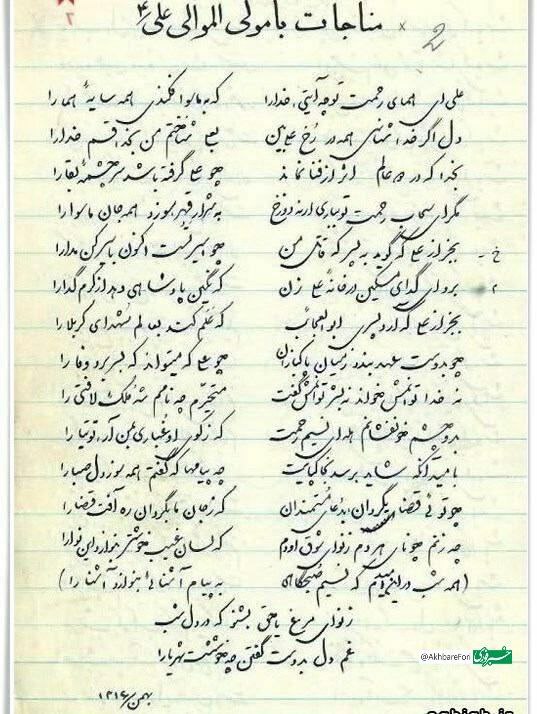 مناجات با مولی الموالی علی ع
علی ای همای رحمت تو چه آیتی خدا را که به ماسوا فکندی همه سایهٔ هما را
دل اگر خداشناسی همه در رخ علی بین به علی شناختم من به خدا قسم خدا را
به خدا که در دو عالم اثر از فنا نماند چو علی گرفته باشد سر چشمهٔ بقا را
مگر ای سحاب رحمت تو بباری ار نه دوزخ به شرار قهر بسوزد همه جان ماسوا را
۲ برو ای گدای مسکین در خانهٔ علی زن که نگین پادشاهی دهد از کرم گدا را
خ بجز از علی که گوید به پسر که قاتل من چو اسیر تست اکنون به اسیر کن مدارا
بجز از علی که آرد پسری ابوالعجائب که علم کند به عالم شهدای کربلا را
چو به دوست عهد بندد ز میان پاکبازان چو علی که میتواند که بسر برد وفا را
نه خدا توانمش خواند نه بشر توانمش گفت متحیرم چه نامم شه ملک لافتی را
بدو چشم خونفشانم هله ای نسیم رحمت که ز کوی او غباری به من آر توتیا را
به امید آنکه شاید برسد به خاک پایت چه پیامها که گفتم همه سوز دل صبا را
چو تویی قضای گردان به دعای مستمندان که ز جان ما بگردان ره آفت قضا را
چه زنم چو نای هر دم ز نوای شوق او دم که لسان غیب خوشتر بنوازد این نوا را
(همه شب در این امیدم که نسیم صبحگاهی به پیام آشنائی بنوازد آشنا را)
ز نوای مرغ یا حق بشنو که در دل شب
غم دل بدوست گفتن چه خوشست شهریارا
بهمن/۱۳۱۶
@AkhbareFori
خبرفوری